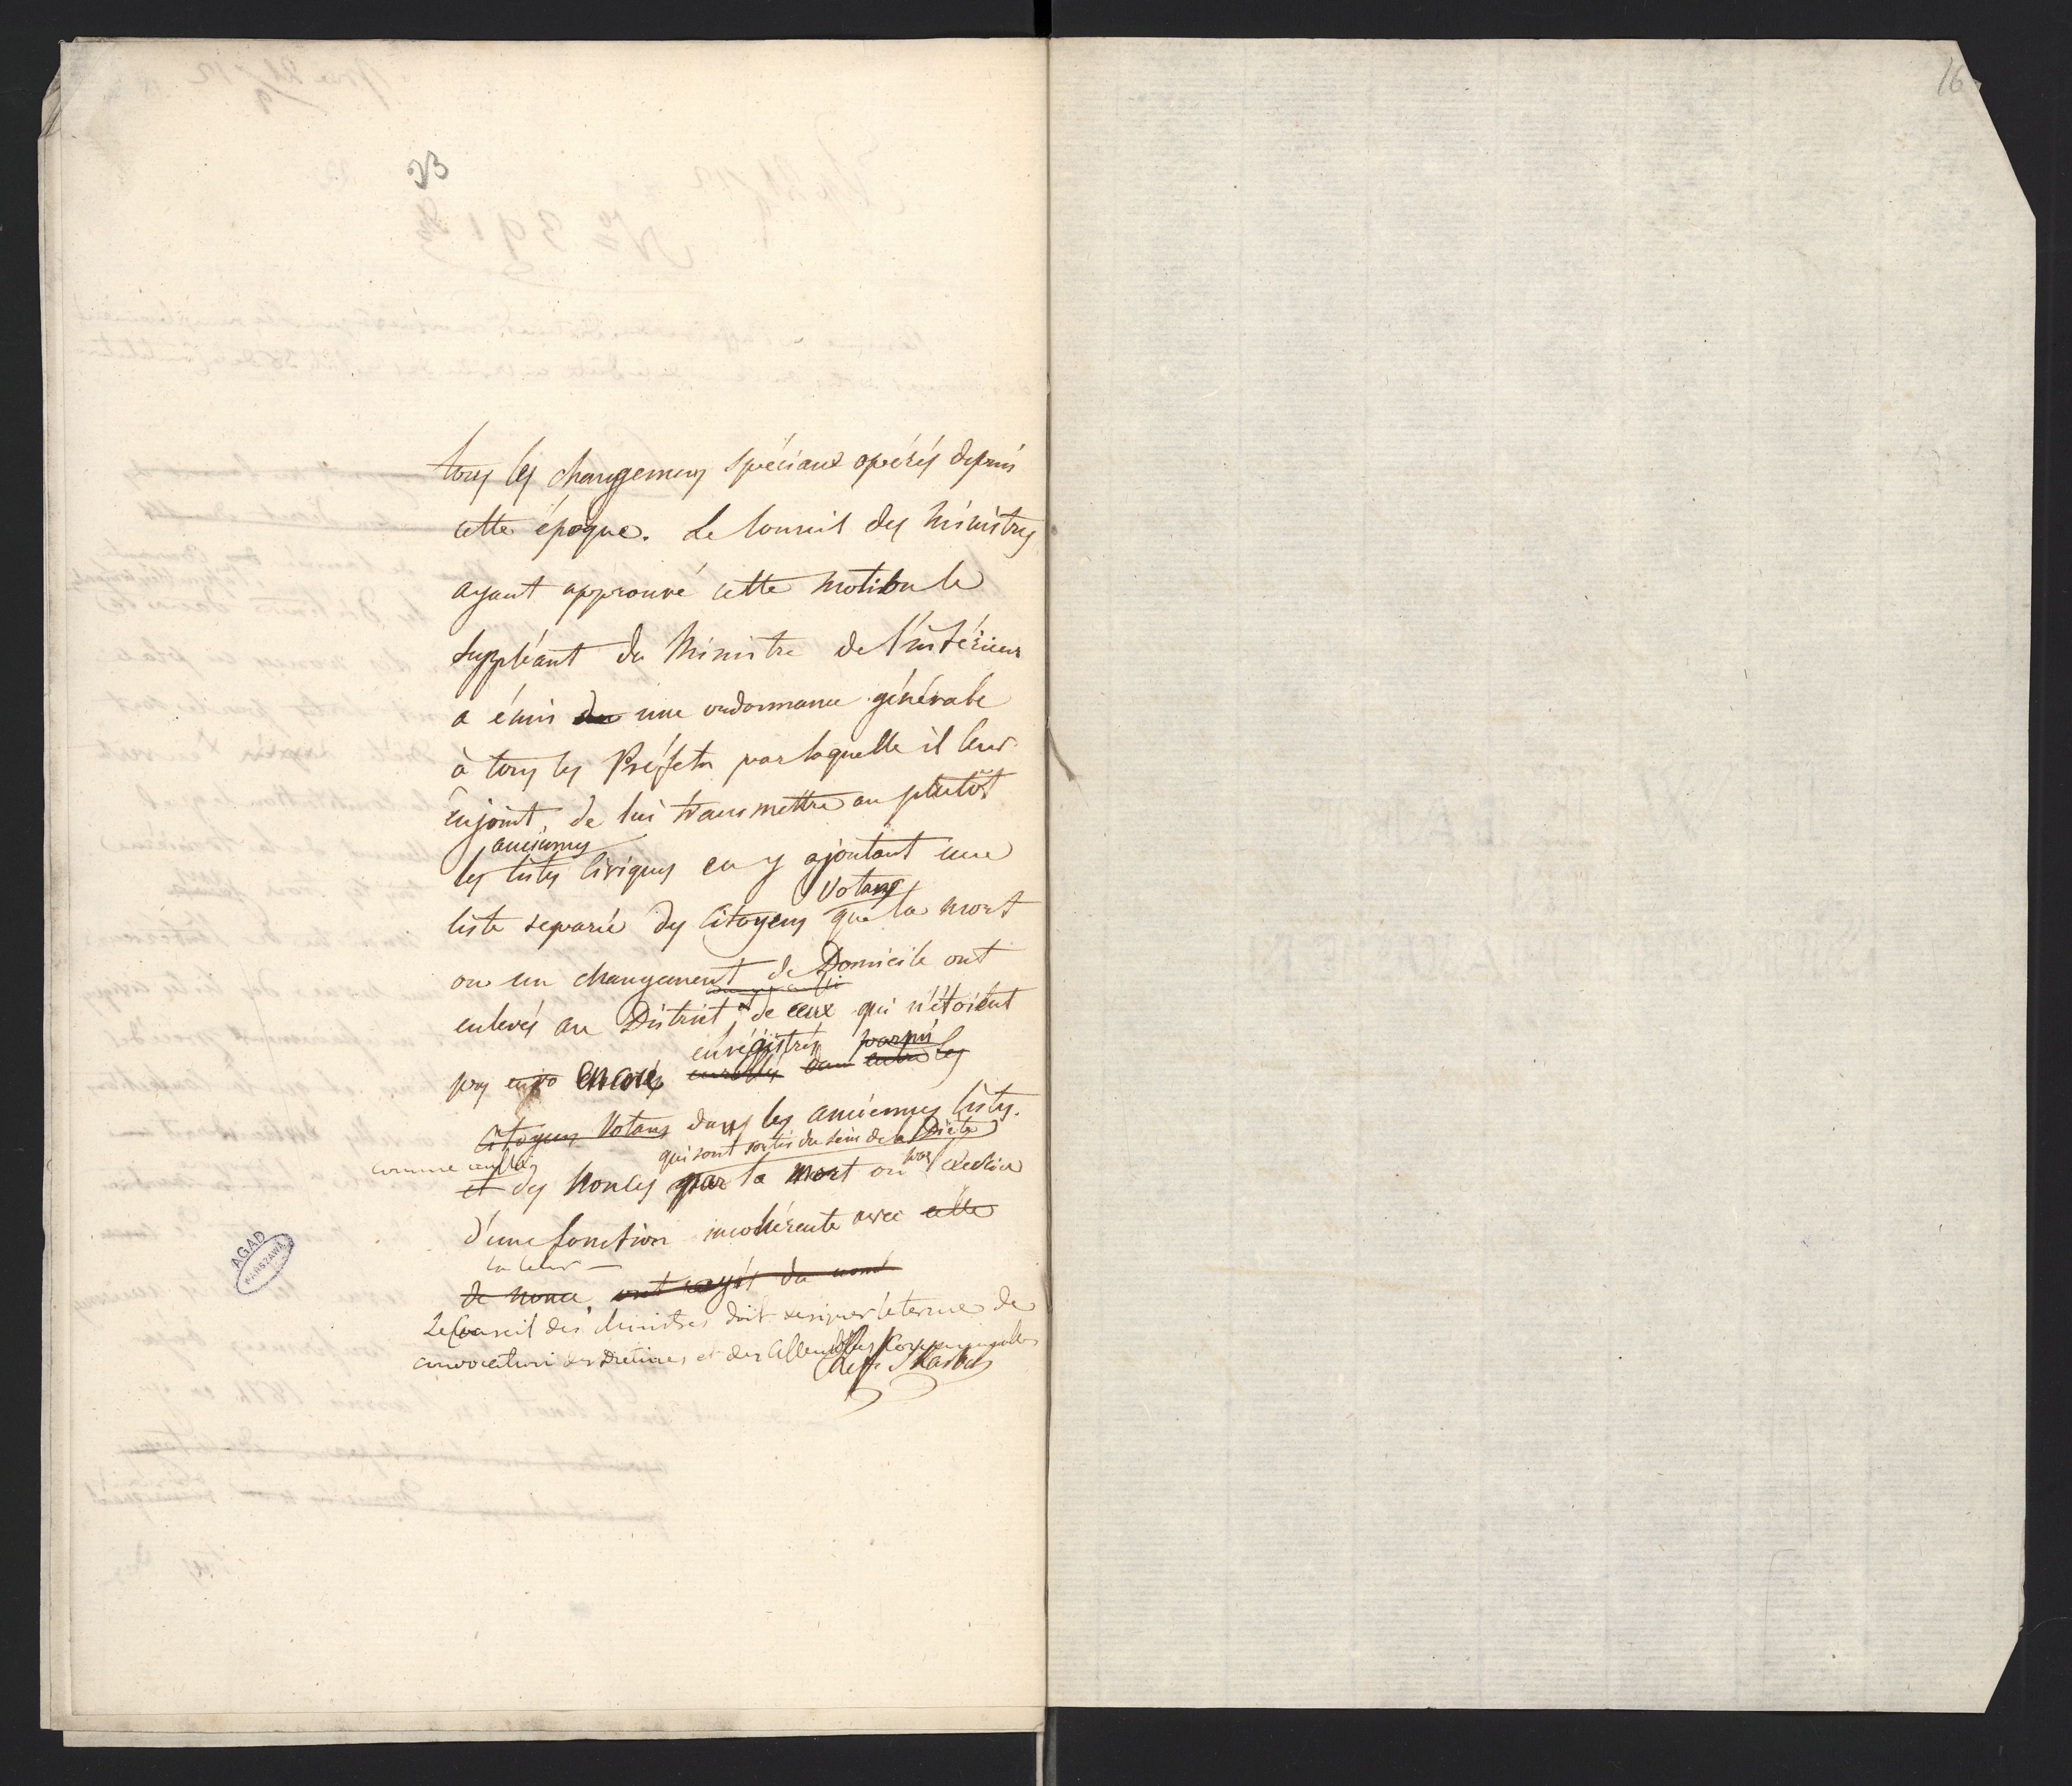 16
tous les changemens spéciaux opérés depuis
cette époque. Le Conseil des Ministres
ayant approuvé cette motion le
Suppléant du Ministre de l'intérieur
a émis une ordonnance générale
à tous les Préfets par laquelle il leur
enjoint, de lui transmettre au plutôt
anciennes
les listes civiques en y ajoutant une
Votans
liste separée des Citoyens que la mort
ou un changement de Domicile ont
enlevés au District, et de ceux qui n'étoient
enrégistrés parmi
pas encore enrollés dans entre les
Citoyens Votans dans les anciennes listes.
qui sont sortis du sein de la Diète
comme celles
et des Nonces par la mort ou par
d'une fonction incohérente avec celle
la leur
de nonce, ont rayés du
Le Conseil des Ministres doit designer le terme de
convocation des Diétines et des Assemblées Communales
Skarbek
AGAD
WARSZAWA